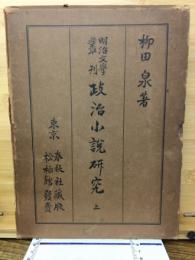 柳田 泉著
明治文學
叢刊
政治小說研究 上
東京
春秋社藏版
松柏館發賣